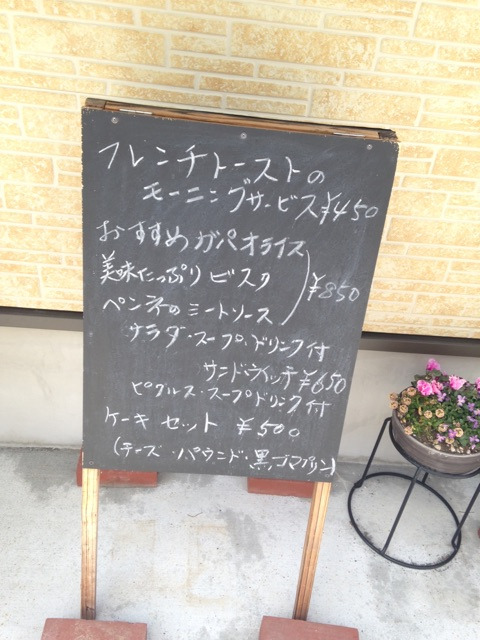 フレンチトーストの
モーニングサービス ¥450
おすすめ ガパオライス
美味たっぷり ビスク
ペンネのミートソース ¥850
サラダ・スープ・ドリンク付
サンドウィッチ ¥650
ピクルス・スープ ドリンク付
ケーキ セット ¥500
(チーズ・パウンド・黒ゴマプリン)